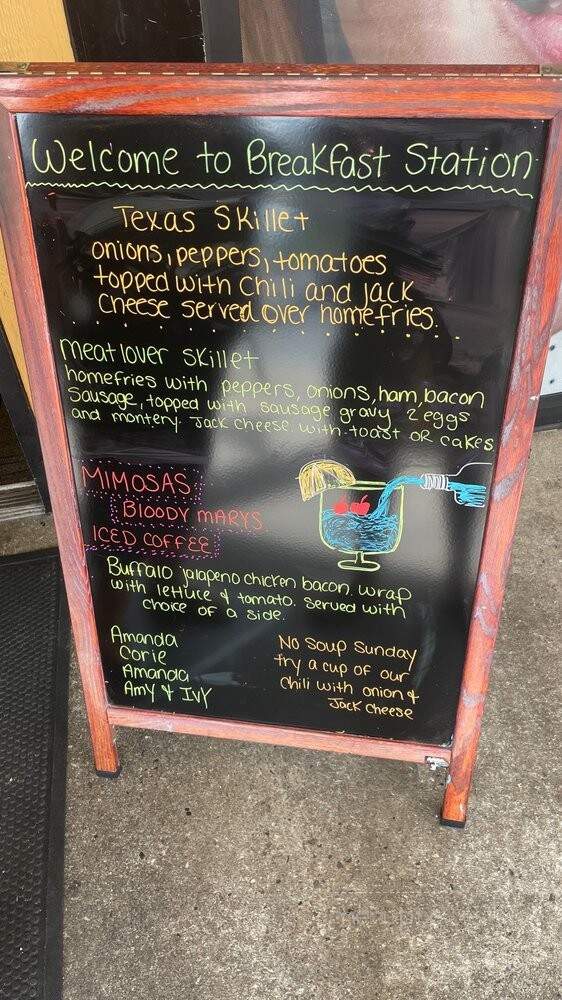 Welcome to Breakfast Station
Texas Skillet
onions, peppers, tomatoes
topped with Chili and Jack
Cheese served over homefries.
meat lover Skillet
homefries with peppers, onions, ham, bacon
Sausage, topped with sausage gravy 2 eggs
and montery Jack cheese with toast OR cakes
MIMOSAS
BLOODY MARYS
ICED COFFEE
Buffalo jalapeno chicken bacon wrap
with lettuce & tomato. served with
choice of a side.
Amanda
Corie
Amanda
Amy & Ivy
No Soup Sunday
try a cup of our
Chili with onion &
Jack Cheese